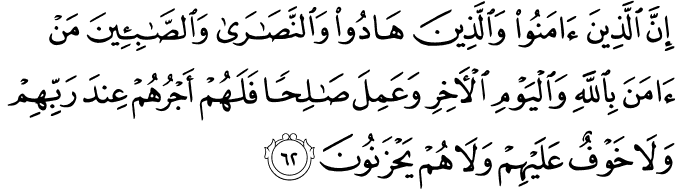 إِنَّ ٱلَّذِينَ ءَامَنُوا۟ وَٱلَّذِينَ هَادُوا۟ وَٱلنَّصَـٰرَىٰ وَٱلصَّـٰبِـِٔينَ مَنْ
ءَامَنَ بِٱللَّهِ وَٱلْيَوْمِ ٱلْـَٔاخِرِ وَعَمِلَ صَـٰلِحًا فَلَهُمْ أَجْرُهُمْ عِندَ رَبِّهِمْ
وَلَا خَوْفٌ عَلَيْهِمْ وَلَا هُمْ يَحْزَنُونَ ٦٢